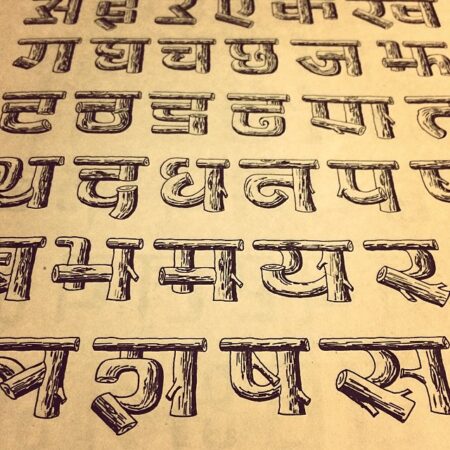 ए क ख
ग घ च छ ज झ
ट ठ ड ढ ण त
थ द ध न प
भ म य र
श ष स